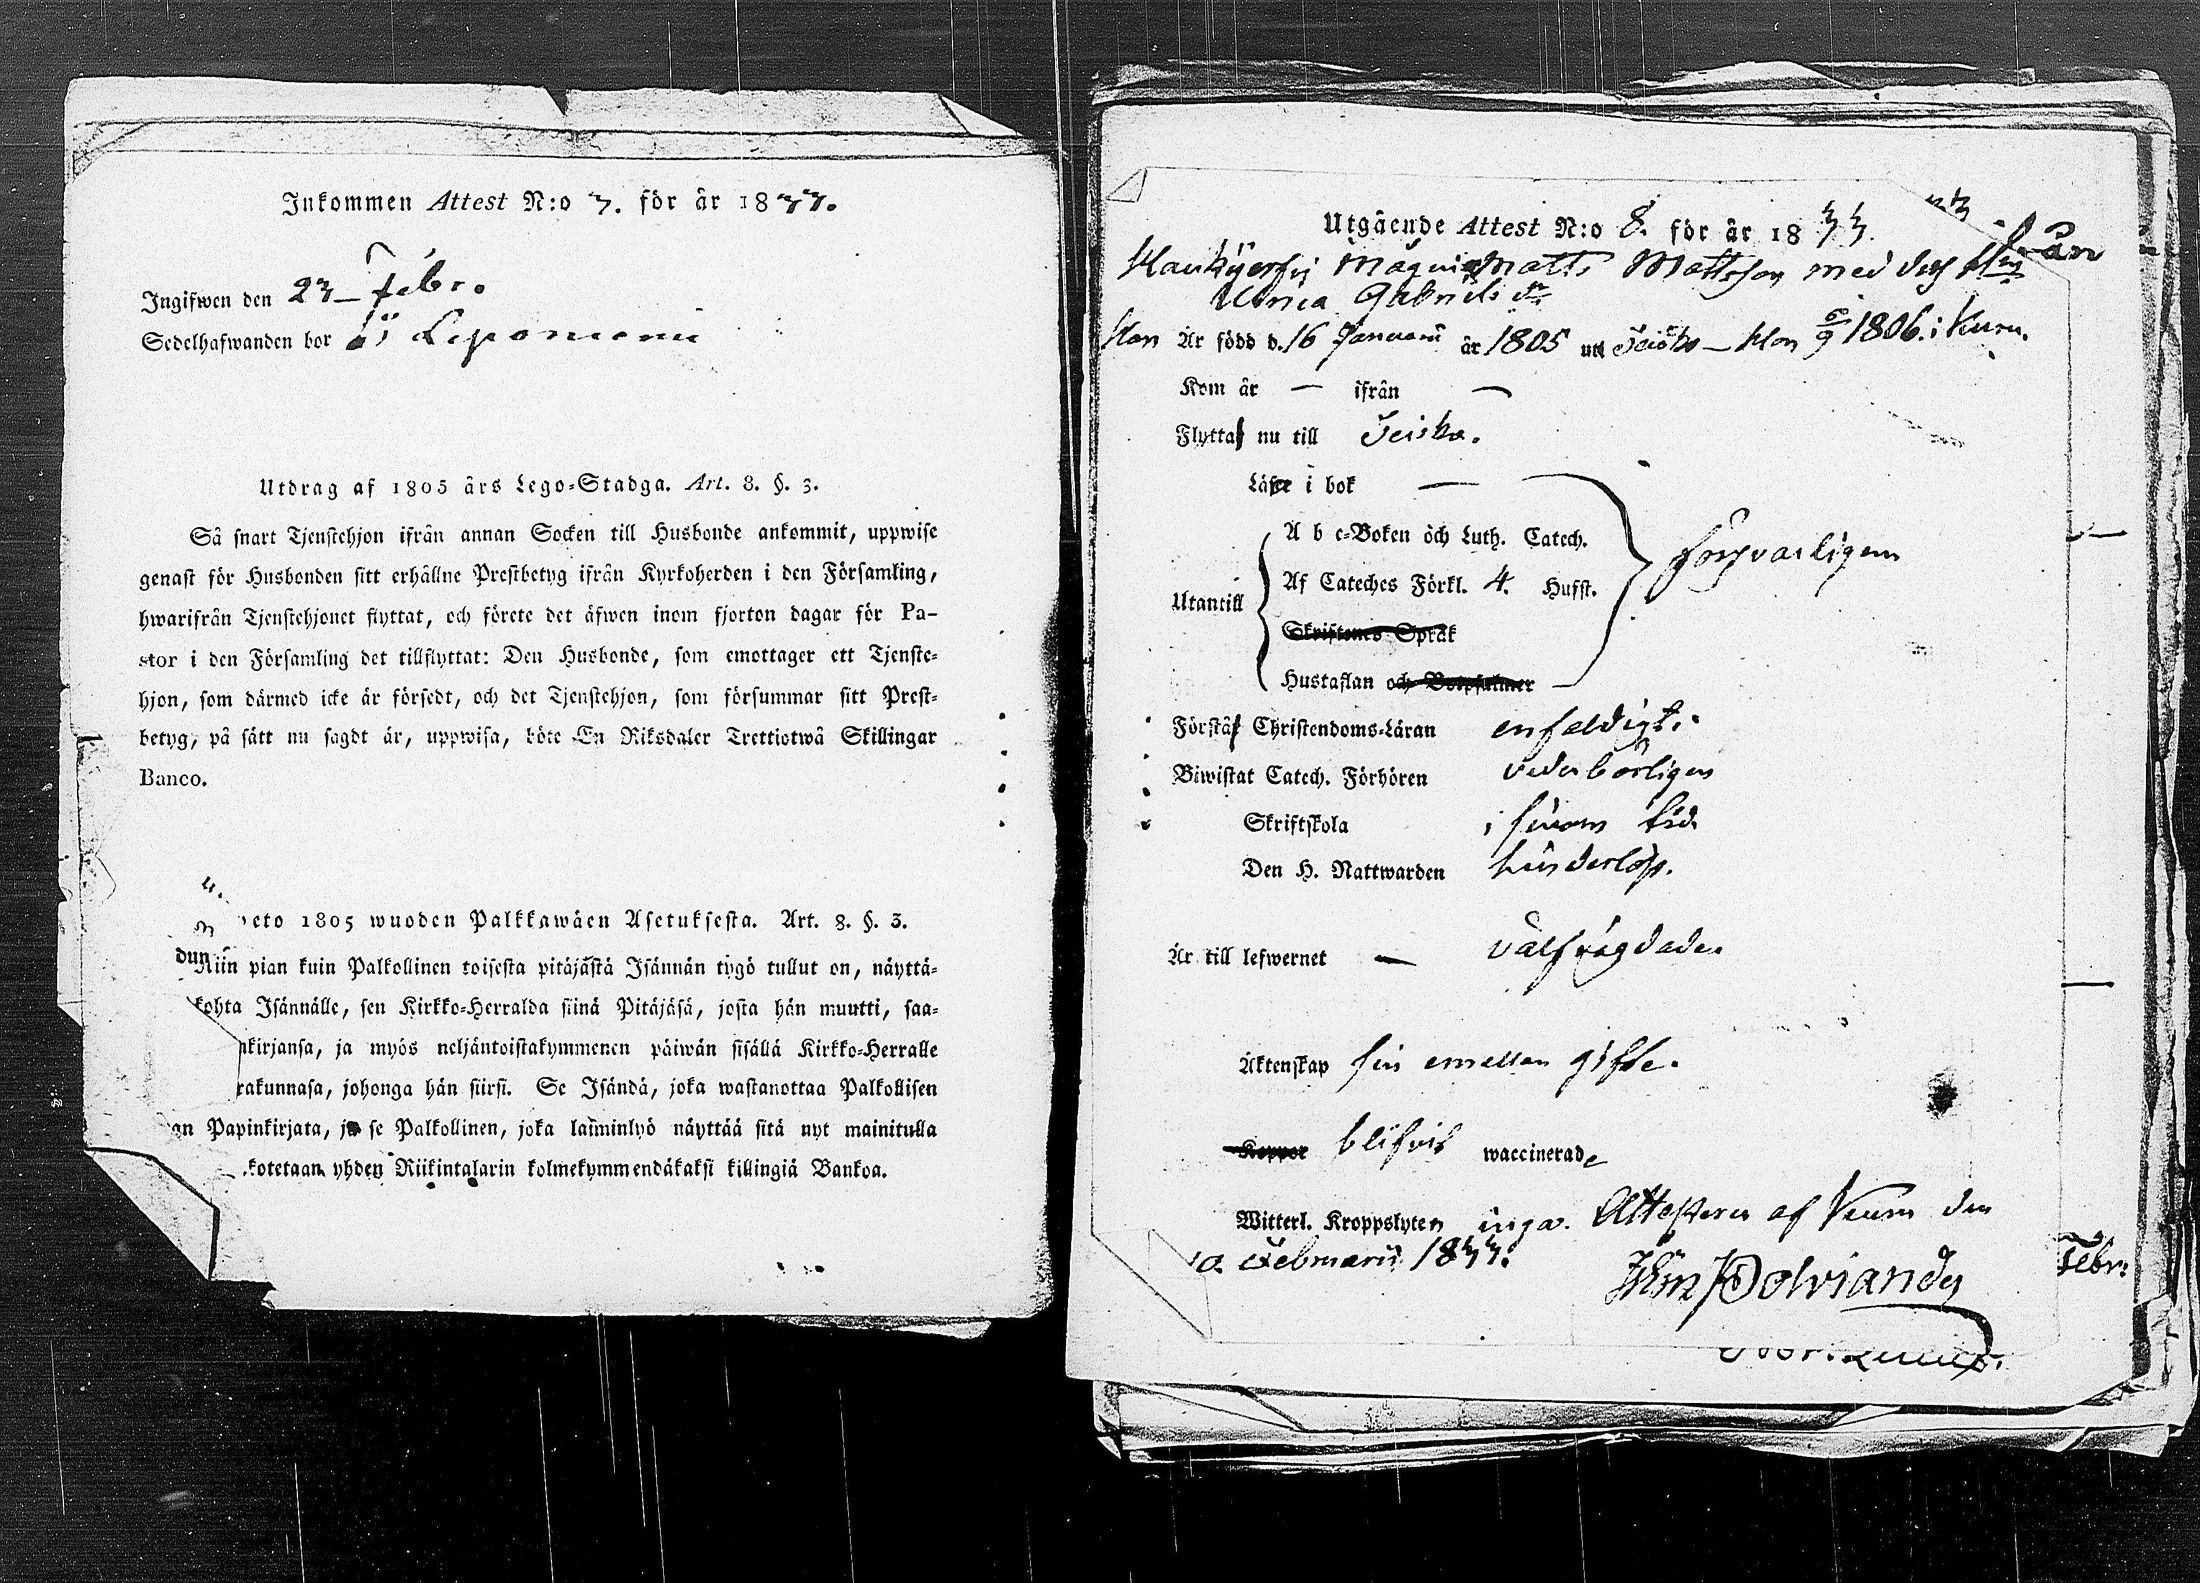 Inkommen Attest N:o 3. för år 1833.
Ingifwen den 23 Febr.
Sedelhafwanden bor i
Utdrag af 1805 års Lego-Stadga. Art. 8. §. 3.
Så snart Tjenstehjon ifrån annan Socken till Husbonde ankommit, uppwise
genast för Husbonden sitt erhållne Prestbetyg ifrån Kyrkoherden i den Församling,
hwarifrån Tjenstehjonet flyttat, och förete det äfwen inom fjorton dagar för Pa-
stor i den Församling det tillflyttat: Den Husbonde, som emottager ett Tjenste-
hjon, som därmed icke är försedt, och det Tjenstehjon, som försummar sitt Prest-
betyg, på sätt nu sagdt är, uppwisa, böte En Riksdaler Trettiotwå Skillingar
Banco.
4.
3
eto 1805 wuoden Palkkawäen Asetuksesta. Art. 8. §. 3.
dun
Niin pian kuin Palkollinen toisesta pitäjästä Isännän tygö tullut on, näyttä-
kohta Isännälle, sen Kirkko-Herralda siinä Pitäjäsä, josta hän muutti, saa-
kirjansa, ja myös neljäntoistakymmenen päiwän sisällä Kirkko-Herralle
rakunnasa, johonga hän siirsi. Se Isändä, joka wastanottaa Palkollisen
an Papinkirjata, ja se Palkollinen, joka laiminlyö näyttää sitä nyt mainitulla
kotetaan yhden Riikintalarin kolmekymmendäkaksi killingiä Bankoa.
Utgående Attest N:o 8. för år 1833.
Matts Mattsson med dess
Gabriels dr
Han Är född d. 16 Januarii år 1805 uti - Hon 1806. i
Kom år — ifrån —
Flyttas nu till
Läser i bok —
A b c-Boken och Luth. Catech.
Utantill Af Cateches Förkl. 4. Hufst. försvarligen
Skriftenes Språk
Hustaflan och Botpsalmer
Förstås Christendoms-Läran enfaldigt.
Biwistat Catech. Förhören vederbörligen
Skriftskola i sinom tid
Den H. Nattwarden hinderlöst.
Är till lefwernet — välfrägdade.
Äktenskap sin emellan gifte.
Koppor blifvit waccinerade
Witterl. Kroppslyten inga. Attesteras af Kumo den
Februarii 1833.
Febr: